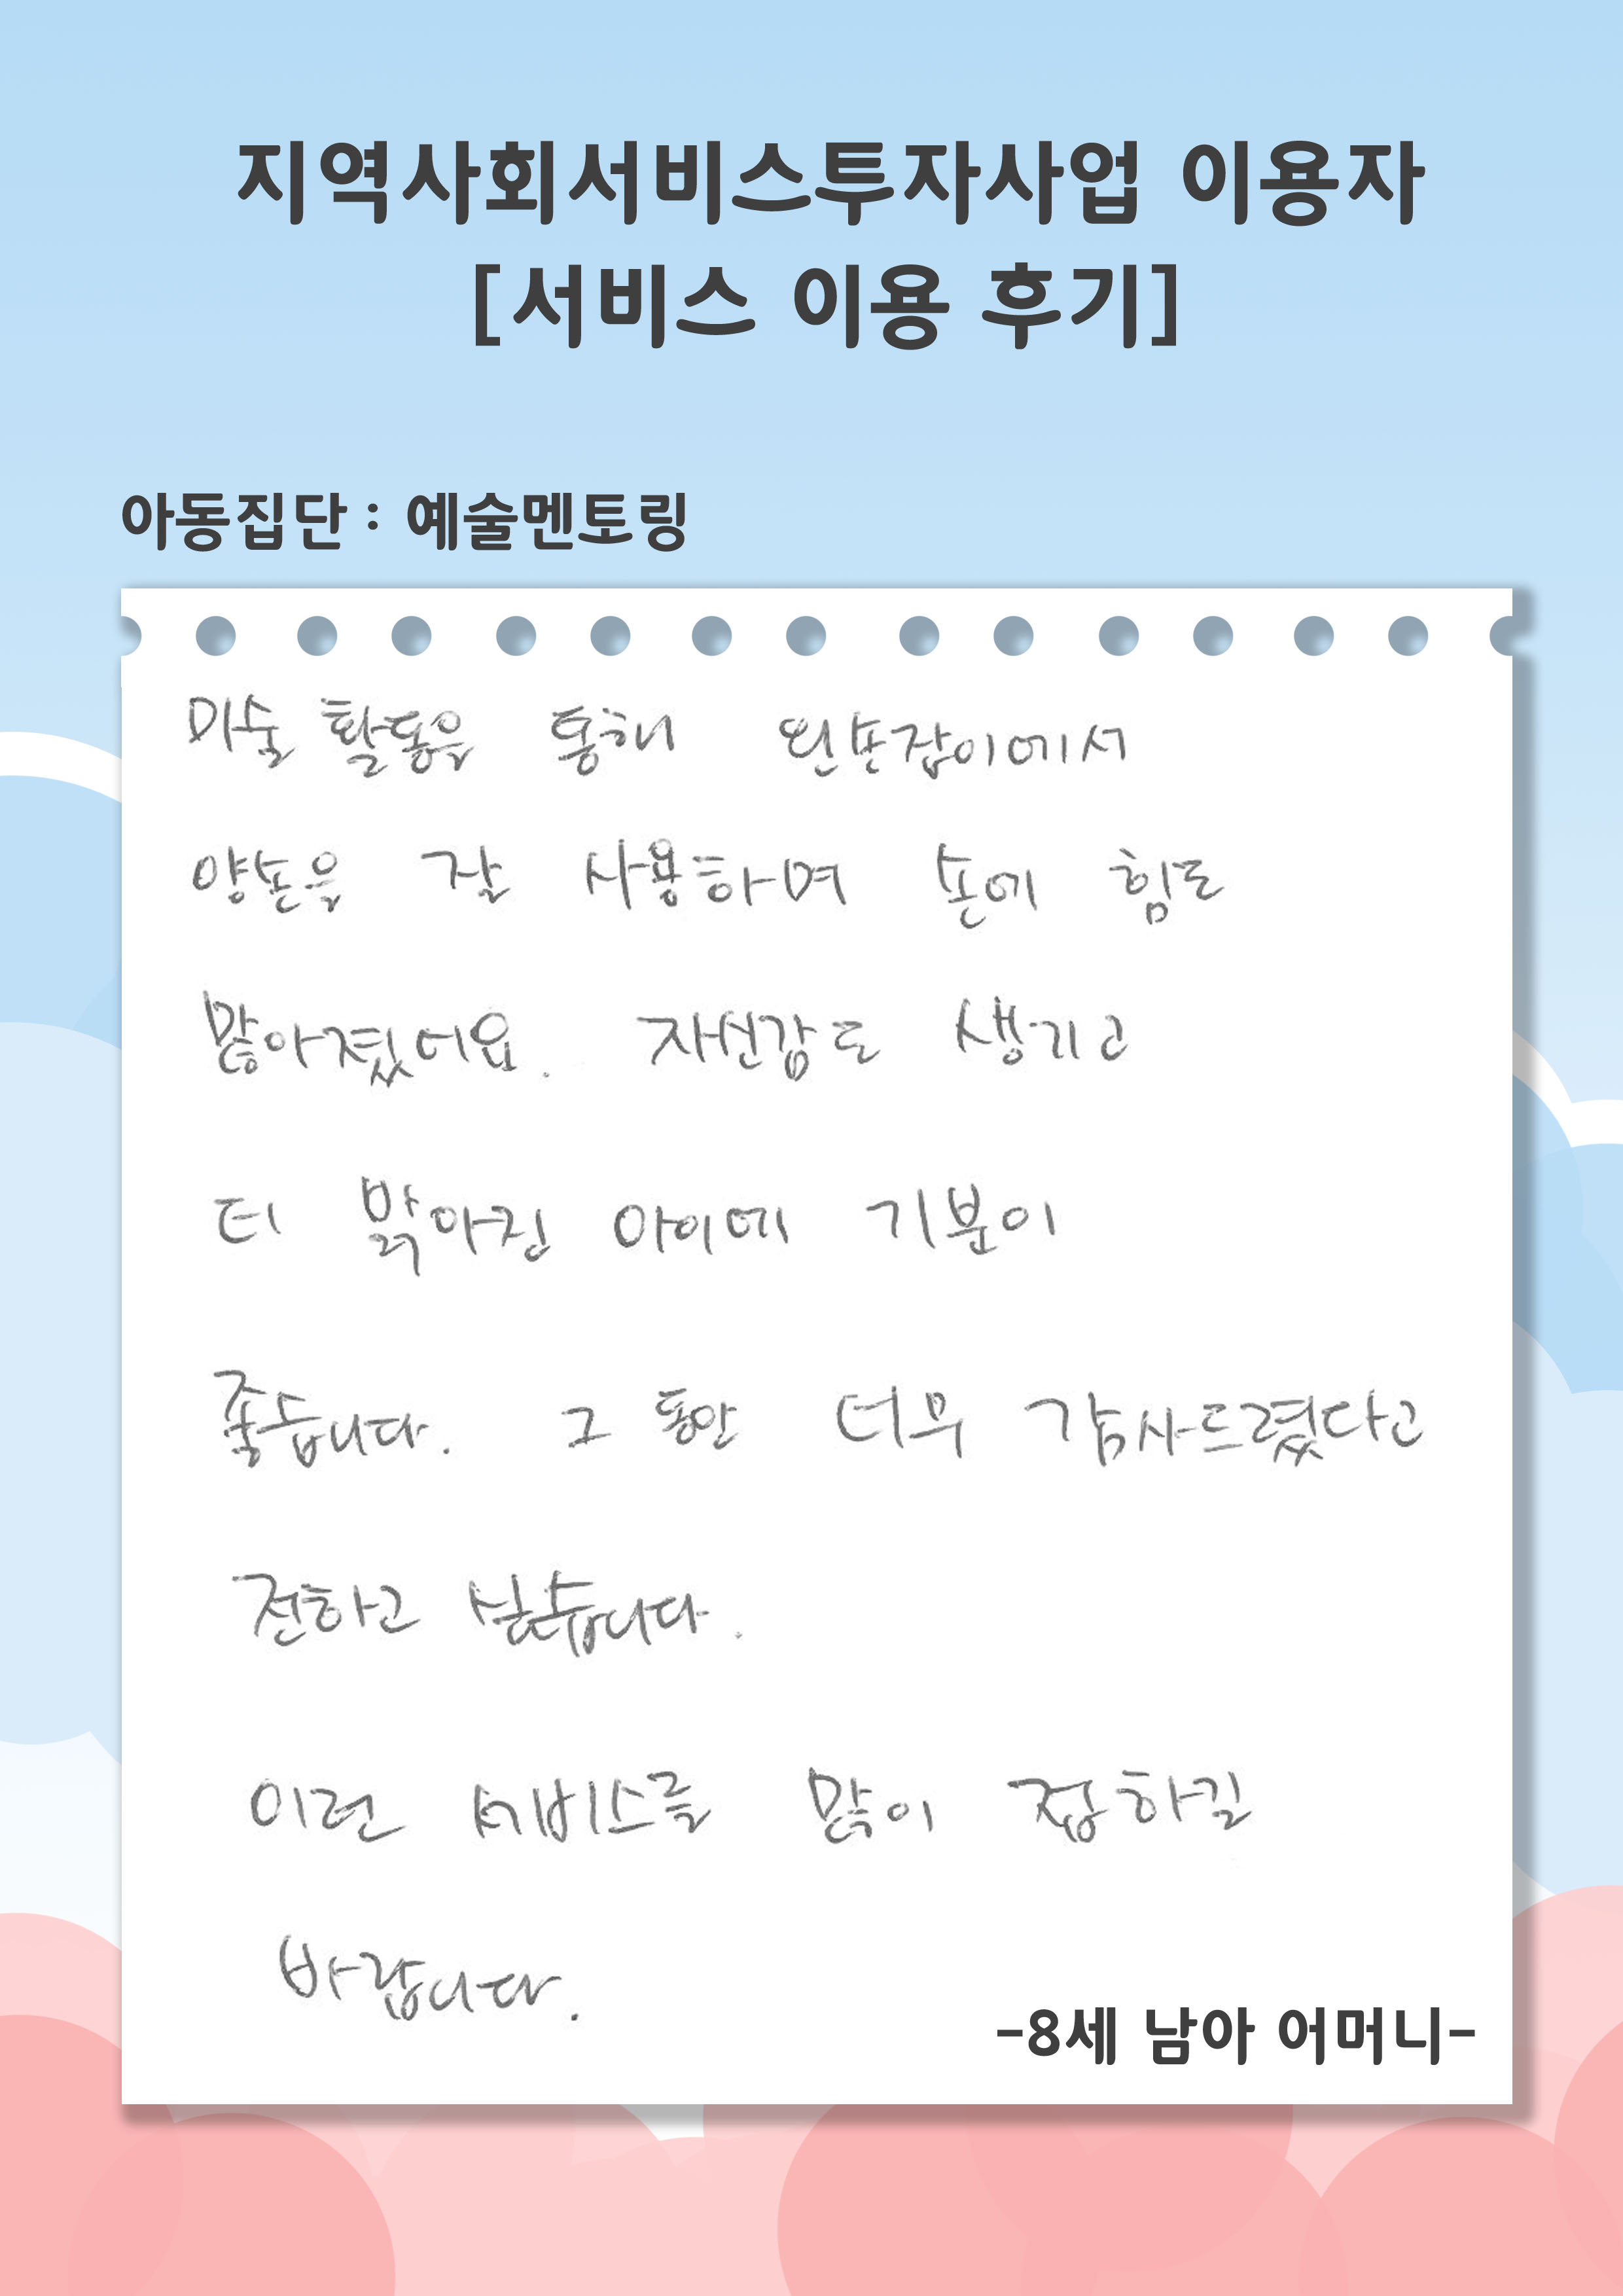 지역사회서비스투자사업 이용자
[서비스 이용 후기]
아동집단 : 예술멘토링
미술 활동을 통해 왼손잡이에서
양손을 잘 사용하며 손에 힘도
많아졌어요. 자신감도 생기고
더 밝아진 아이에 기분이
좋습니다. 그 동안 너무 감사드렸다고
전하고 싶습니다.
이런 서비스를 많이 접하길
바랍니다.
-8세 남아 어머니-